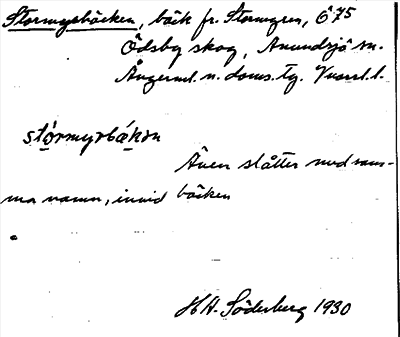 Stormyrbäcken, bäck fr. Stormyren, Ö 75
Ödsby skog, Anundsjö sn.
Ångerml. n. doms. tg. Vnorrl. l.
stórmyrbákɘn
Även slåtter med sam-
ma namn, invid bäcken
H H. Söderberg 1930